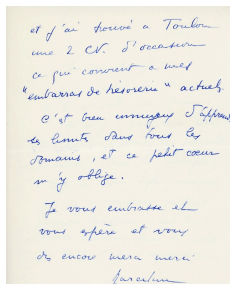 et j'ai trouvé à Toulon
une 2 CV. d'occasion
ce qui convient à mes
"embarras de trésorerie" actuels.
C'est bien ennuyeux d'apprendre
les limites dans tous les
domaines, et ce petit cœur
m'y oblige.
Je vous embrasse et
vous espère et vous
dis encore merci merci